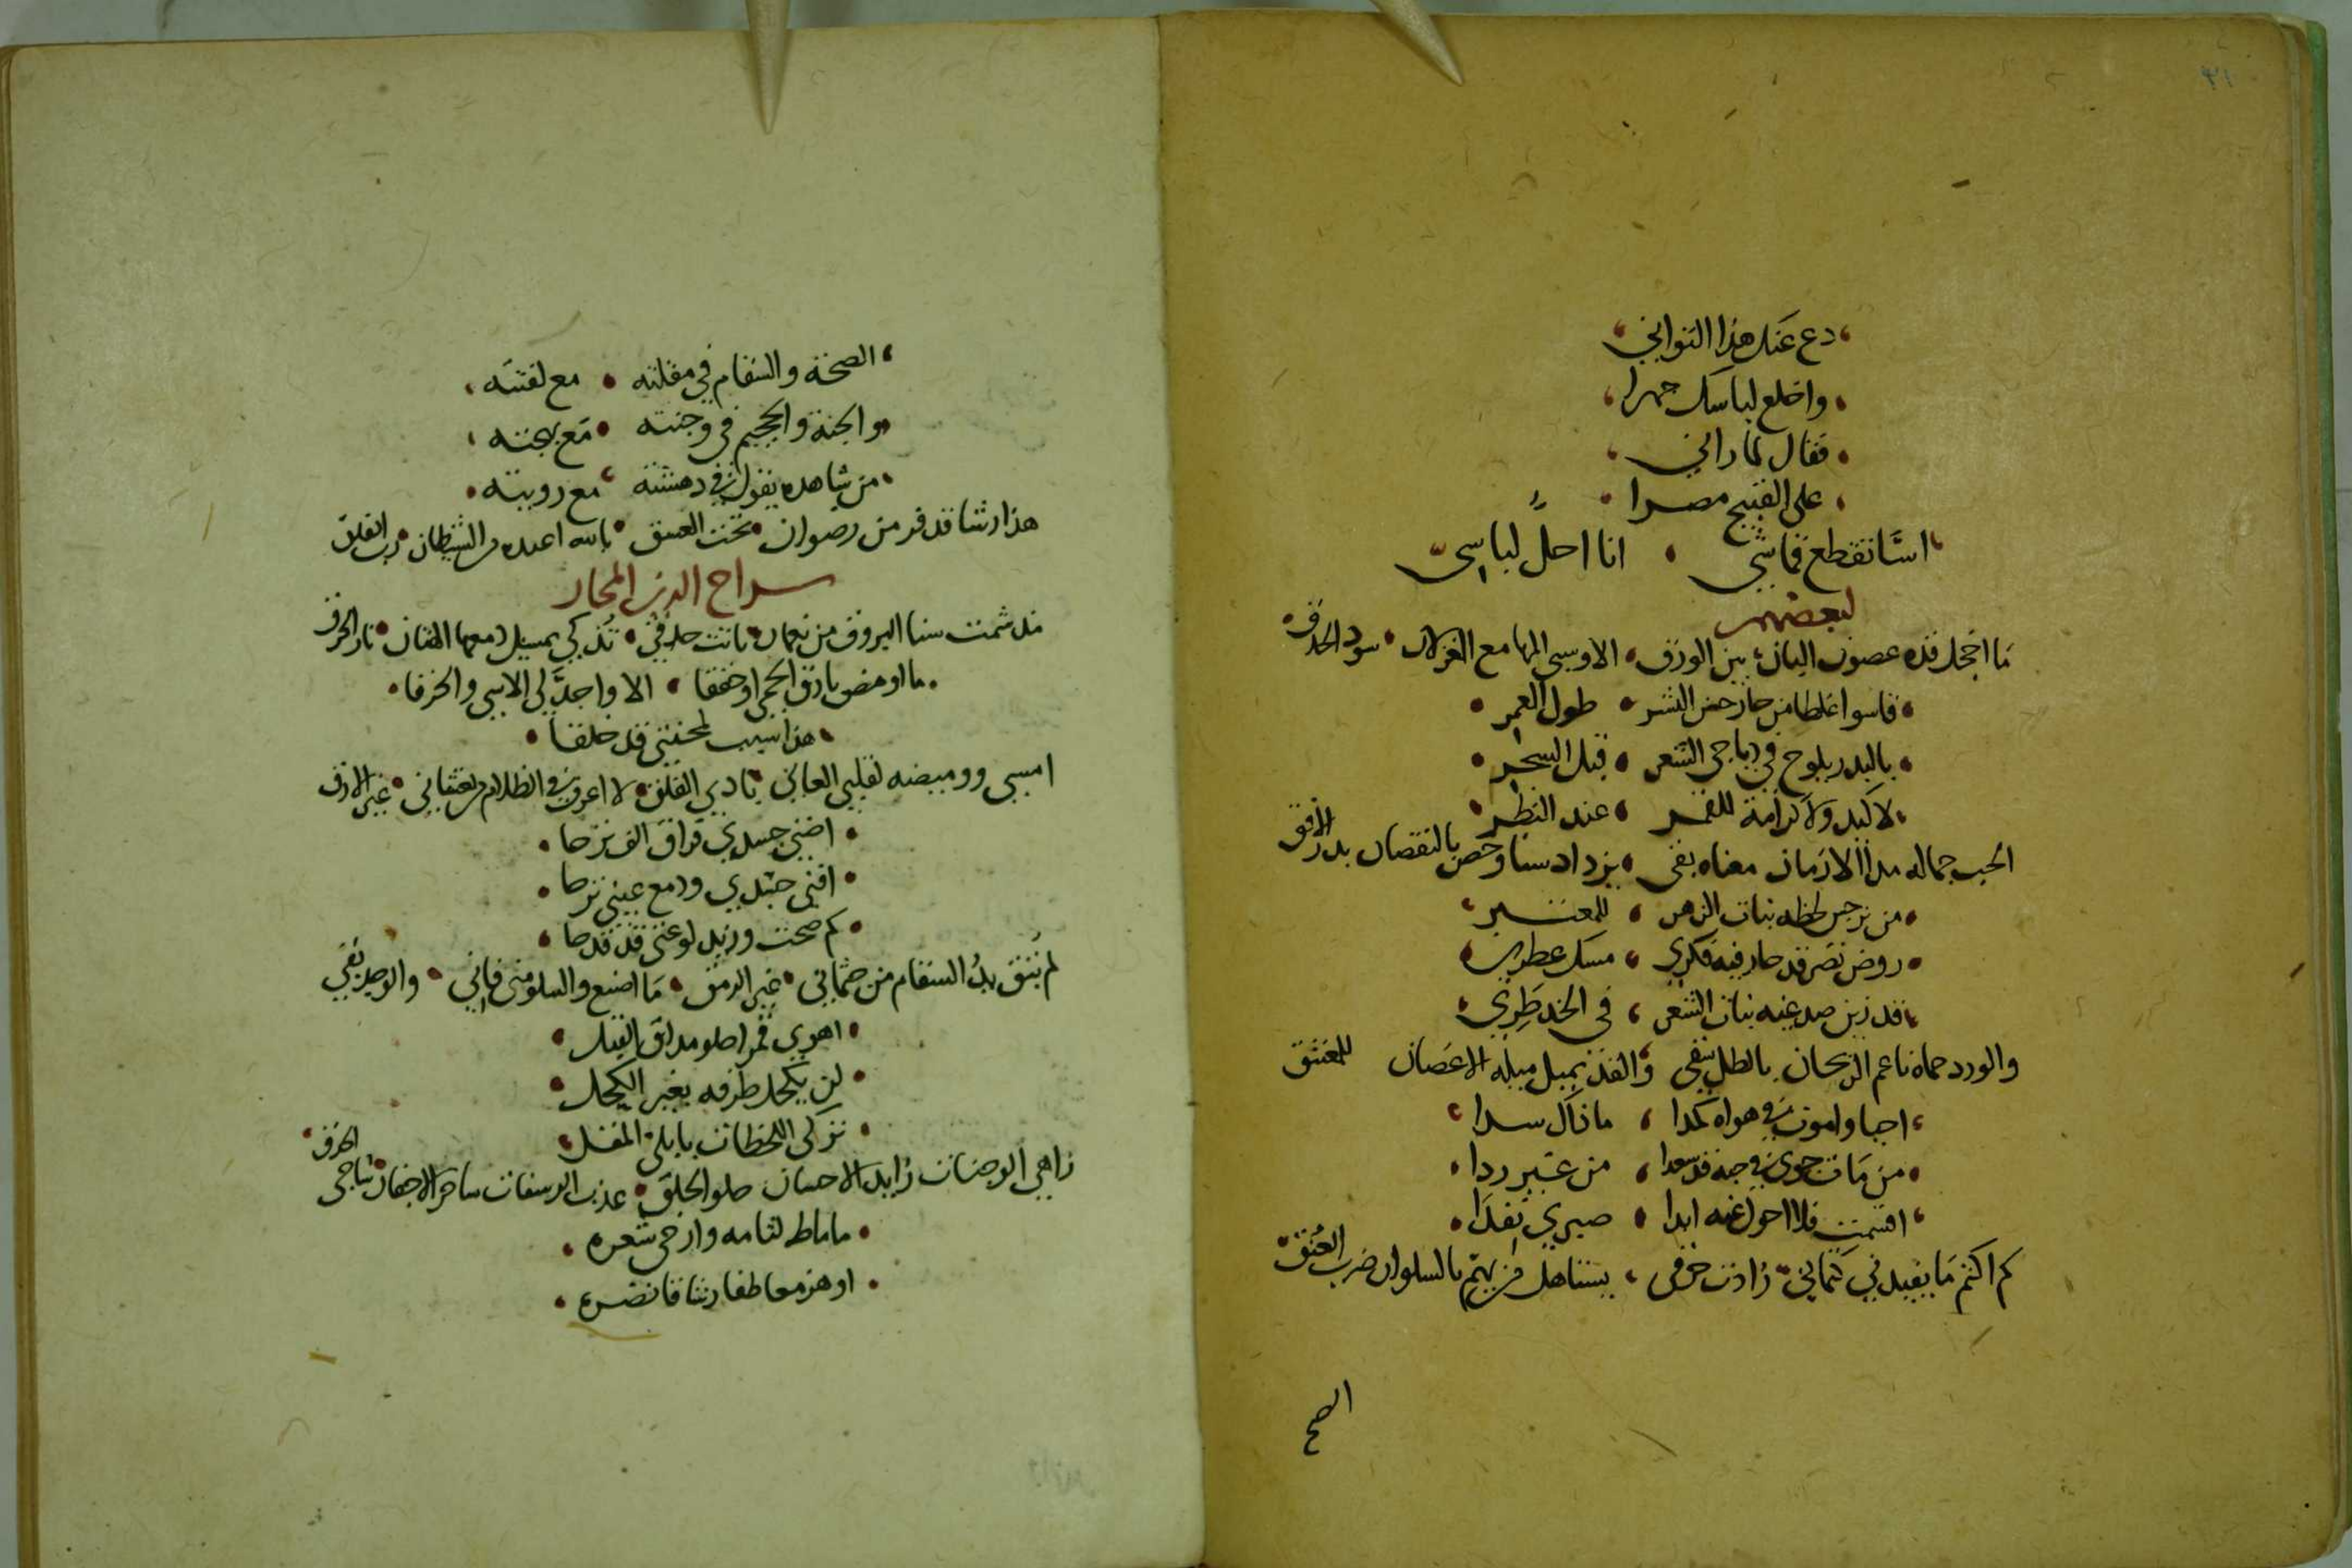 ٣١
دع عنك هذا التواني
واخلع لباسك جهرا
فقال لما راني
على القبيح مصرا
استا تقطع قماشي انا احل لباسي
لبعضهم
ما اخجل قده غصون البان بين الورق الا وسبى المها مع الغزلان سود الحدق
قاسوا غلطا من حاز حسن البشر طول العمر
بالبدر يلوح في دياجي الشعر قبل السحر
لا كيد ولا كرامة للقمر عند النظر
الحب جماله مدا الازمان معناه بقى يزداد سنا وخص بالنقصان بدر الافق
من نرجس لحظه نبات الزهر للمعتبر
روض نضر قد حار فيه فكري مسك عطري
قد زين صدغيه نبات الشعر في الخد طري
والورد حماه ناعم الريحان بالطل سقي والقد يميل ميله الاغصان للمعتنق
احيا واموت في هواه كمدا ما ذاك سدا
من مات جوى في حبه قد سعدا من غير ردا
اقسمت فلا احول عنه ابدا صبري نفدا
كم اكتم ما يفيدني كتماني زادت حرقي يستاهل من يهم بالسلوان ضرب العنق
الصح
الصحة والسقام في مقلته مع لفتته
والجنة والجحيم في وجنته مع بهجته
من شاهده يقول في دهشته مع رويته
هذا رشا قد فر من رضوان تحت الغسق بالله اعيده من الشيطان رب الفلق
سراج الدين المحار
مذ شمت سنا البروق من نعمان باتت حدقي تذكي بمسيل دمعها الهتان نار الحرق
ما اومض بارق الحمى او خفقا الا واجد لي الاسى والحرقا
هذا سبب لمحنتي قد خلقا
امسى ووميضه لقلبي العاني بادي القلق لا اعرف في الظلام ما يغشاني غير الارق
اضنى جسدي فراق الف نزحا
افنى جلدي ودمع عيني نزحا
كم صحت وزند لوعتي قد قدحا
لم تبق يد السقام من جثماني غير الرمق ما اصنع والسلو مني فاني والوجد بقي
اهوى قمرا حلو مذاق القبل
لن يكحل طرفه بغير الكحل
تركي اللحظات بابلي المقل
زاهي الوجنات زايد الاحسان حلو الخلق عذب الرشفات ساحر الاجفان ساجي الحدق
ما ماط لثامه وارخى شعره
او هز معاطفا رشاقا نضره